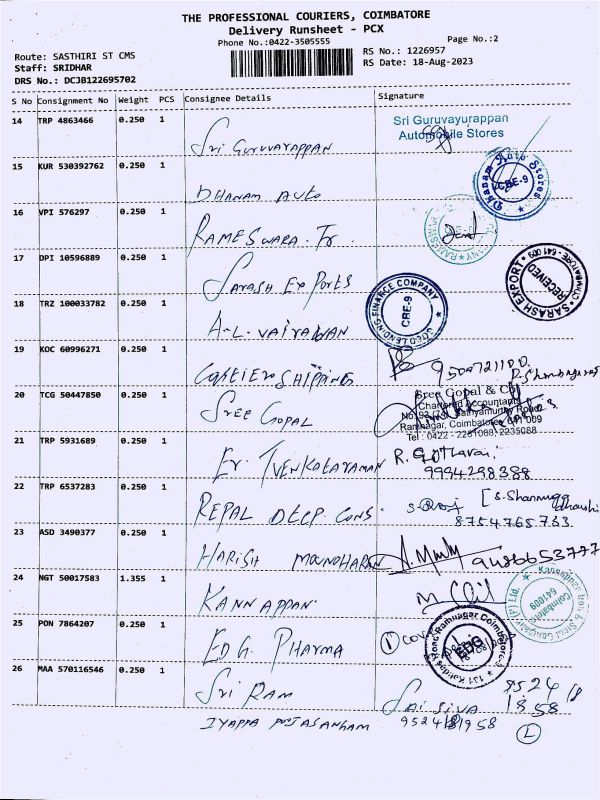 THE PROFESSIONAL COURIERS, COIMBATORE
Delivery Runsheet - PCX
Phone No.:0422-3505555
Page No.:2
Route: SASTHIRI ST CMS
Staff: SRIDHAR
DRS No.: DCJB122695702
RS No.: 1226957
RS Date: 18-Aug-2023
S No Consignment No Weight PCS Consignee Details Signature
14 TRP 4863466 0.250 1
Sri Guruvayurappan
Automobile Stores
SRI GURUVARAPPAN
15 KUR 530392762 0.250 1
Dhanam Auto Stores
CBE-9
DHANAM AUTO
16 VPI 576297 0.250 1
RAMESWARA Tr.
17 DPI 10596889 0.250 1
SARASH EXPORT
RECEIVED
COIMBATORE - 641 009
SARASH EXPORTS
18 TRZ 100033782 0.250 1
LENDING FINANCE COMPANY
CBE-9
A.L. VAIRAVAN
19 KOC 60996271 0.250 1
9500721100
SHIPPING
20 TCG 50447850 0.250 1
Sree Gopal & Co
Chartered Accountants
Ramnagar, Coimbatore 641 009
Tel : 0422 - 2231088, 2235088
SREE GOPAL
21 TRP 5931689 0.250 1
R. Gothavari
9994298388
Er. T VENKATARAMAN
22 TRP 6537283 0.250 1
8754765733
REPAL DEEP CONS.
23 ASD 3490377 0.250 1
9486653777
HARISH MANOHARAN
24 NGT 50017583 1.355 1
Kannappan Iron & Steel Company (P) Ltd.
Coimbatore
641009
KANNAPPAN
25 PON 7864207 0.250 1
Ramnagar Coimbatore
EDG
EDG. PHARMA
26 MAA 570116546 0.250 1
SRI RAM
SAI SIVA
9524 18
19 58
IYAPPA POJASANGAM
9524181958
L